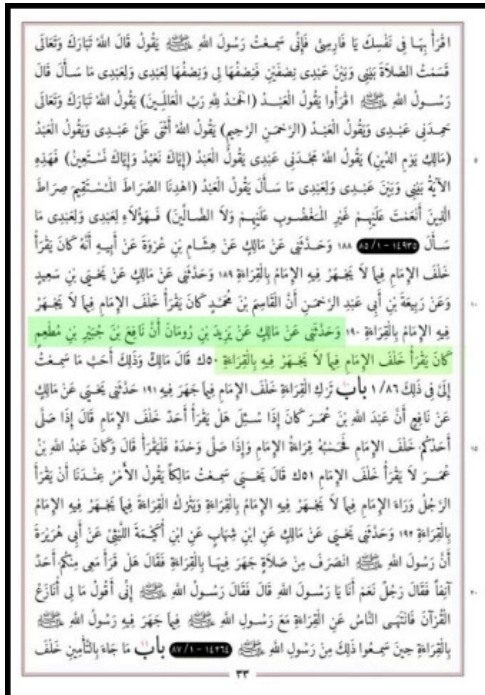 اقْرَأْ بِهَا فِي نَفْسِكَ يَا فَارِسِيُّ فَإِنِّي سَمِعْتُ رَسُولَ اللهِ ﷺ يَقُولُ قَالَ اللهُ تَبَارَكَ وَتَعَالَى
قَسَمْتُ الصَّلَاةَ بَيْنِي وَبَيْنَ عَبْدِي نِصْفَيْنِ فَنِصْفُهَا لِي وَنِصْفُهَا لِعَبْدِي وَلِعَبْدِي مَا سَأَلَ قَالَ
رَسُولُ اللهِ ﷺ اقْرَأُوا يَقُولُ الْعَبْدُ (الْحَمْدُ لِلهِ رَبِّ الْعَالَمِينَ) يَقُولُ اللهُ تَبَارَكَ وَتَعَالَى
حَمِدَنِي عَبْدِي وَيَقُولُ الْعَبْدُ (الرَّحْمَنِ الرَّحِيمِ) يَقُولُ اللهُ أَثْنَى عَلَيَّ عَبْدِي وَيَقُولُ الْعَبْدُ
(مَالِكِ يَوْمِ الدِّينِ) يَقُولُ اللهُ مَجَّدَنِي عَبْدِي يَقُولُ الْعَبْدُ (إِيَّاكَ نَعْبُدُ وَإِيَّاكَ نَسْتَعِينُ) فَهَذِهِ ٥
الْآيَةُ بَيْنِي وَبَيْنَ عَبْدِي وَلِعَبْدِي مَا سَأَلَ يَقُولُ الْعَبْدُ (اهْدِنَا الصِّرَاطَ الْمُسْتَقِيمَ صِرَاطَ
الَّذِينَ أَنْعَمْتَ عَلَيْهِمْ غَيْرِ الْمَغْضُوبِ عَلَيْهِمْ وَلَا الضَّالِّينَ) فَهَؤُلَاءِ لِعَبْدِي وَلِعَبْدِي مَا
سَأَلَ ١٤٩٣٥ - ٨٥/١ ١٨٨ وَحَدَّثَنِي عَنْ مَالِكٍ عَنْ هِشَامِ بْنِ عُرْوَةَ عَنْ أَبِيهِ أَنَّهُ كَانَ يَقْرَأُ
خَلْفَ الْإِمَامِ فِيمَا لَا يَجْهَرُ فِيهِ الْإِمَامُ بِالْقِرَاءَةِ ١٨٩ وَحَدَّثَنِي عَنْ مَالِكٍ عَنْ يَحْيَى بْنِ سَعِيدٍ
وَعَنْ رَبِيعَةَ بْنِ أَبِي عَبْدِ الرَّحْمَنِ أَنَّ الْقَاسِمَ بْنَ مُحَمَّدٍ كَانَ يَقْرَأُ خَلْفَ الْإِمَامِ فِيمَا لَا يَجْهَرُ ١٠
فِيهِ الْإِمَامُ بِالْقِرَاءَةِ ١٩٠ وَحَدَّثَنِي عَنْ مَالِكٍ عَنْ يَزِيدَ بْنِ رُومَانَ أَنَّ نَافِعَ بْنَ جُبَيْرِ بْنِ مُطْعِمٍ
كَانَ يَقْرَأُ خَلْفَ الْإِمَامِ فِيمَا لَا يَجْهَرُ فِيهِ بِالْقِرَاءَةِ ٥٠ك قَالَ مَالِكٌ وَذَلِكَ أَحَبُّ مَا سَمِعْتُ
إِلَيَّ فِي ذَلِكَ ١/٨٦ بَابُ تَرْكِ الْقِرَاءَةِ خَلْفَ الْإِمَامِ فِيمَا جَهَرَ فِيهِ ١٩١ حَدَّثَنِي يَحْيَى عَنْ مَالِكٍ
عَنْ نَافِعٍ أَنَّ عَبْدَ اللهِ بْنَ عُمَرَ كَانَ إِذَا سُئِلَ هَلْ يَقْرَأُ أَحَدٌ خَلْفَ الْإِمَامِ قَالَ إِذَا صَلَّى
أَحَدُكُمْ خَلْفَ الْإِمَامِ فَحَسْبُهُ قِرَاءَةُ الْإِمَامِ وَإِذَا صَلَّى وَحْدَهُ فَلْيَقْرَأْ قَالَ وَكَانَ عَبْدُ اللهِ بْنُ ١٥
عُمَرَ لَا يَقْرَأُ خَلْفَ الْإِمَامِ ٥١ك قَالَ يَحْيَى سَمِعْتُ مَالِكًا يَقُولُ الْأَمْرُ عِنْدَنَا أَنْ يَقْرَأَ
الرَّجُلُ وَرَاءَ الْإِمَامِ فِيمَا لَا يَجْهَرُ فِيهِ الْإِمَامُ بِالْقِرَاءَةِ وَيَتْرُكُ الْقِرَاءَةَ فِيمَا يَجْهَرُ فِيهِ الْإِمَامُ
بِالْقِرَاءَةِ ١٩٢ وَحَدَّثَنِي يَحْيَى عَنْ مَالِكٍ عَنِ ابْنِ شِهَابٍ عَنِ ابْنِ أُكَيْمَةَ اللَّيْثِيِّ عَنْ أَبِي هُرَيْرَةَ
أَنَّ رَسُولَ اللهِ ﷺ انْصَرَفَ مِنْ صَلَاةٍ جَهَرَ فِيهَا بِالْقِرَاءَةِ فَقَالَ هَلْ قَرَأَ مَعِي مِنْكُمْ أَحَدٌ
آنِفًا فَقَالَ رَجُلٌ نَعَمْ أَنَا يَا رَسُولَ اللهِ قَالَ فَقَالَ رَسُولُ اللهِ ﷺ إِنِّي أَقُولُ مَا لِي أُنَازَعُ ٢٠
الْقُرْآنَ فَانْتَهَى النَّاسُ عَنِ الْقِرَاءَةِ مَعَ رَسُولِ اللهِ ﷺ فِيمَا جَهَرَ فِيهِ رَسُولُ اللهِ ﷺ
بِالْقِرَاءَةِ حِينَ سَمِعُوا ذَلِكَ مِنْ رَسُولِ اللهِ ﷺ ١٤٢٦٤ - ٨٧/١ بَابُ مَا جَاءَ بِالتَّأْمِينِ خَلْفَ
٣٣